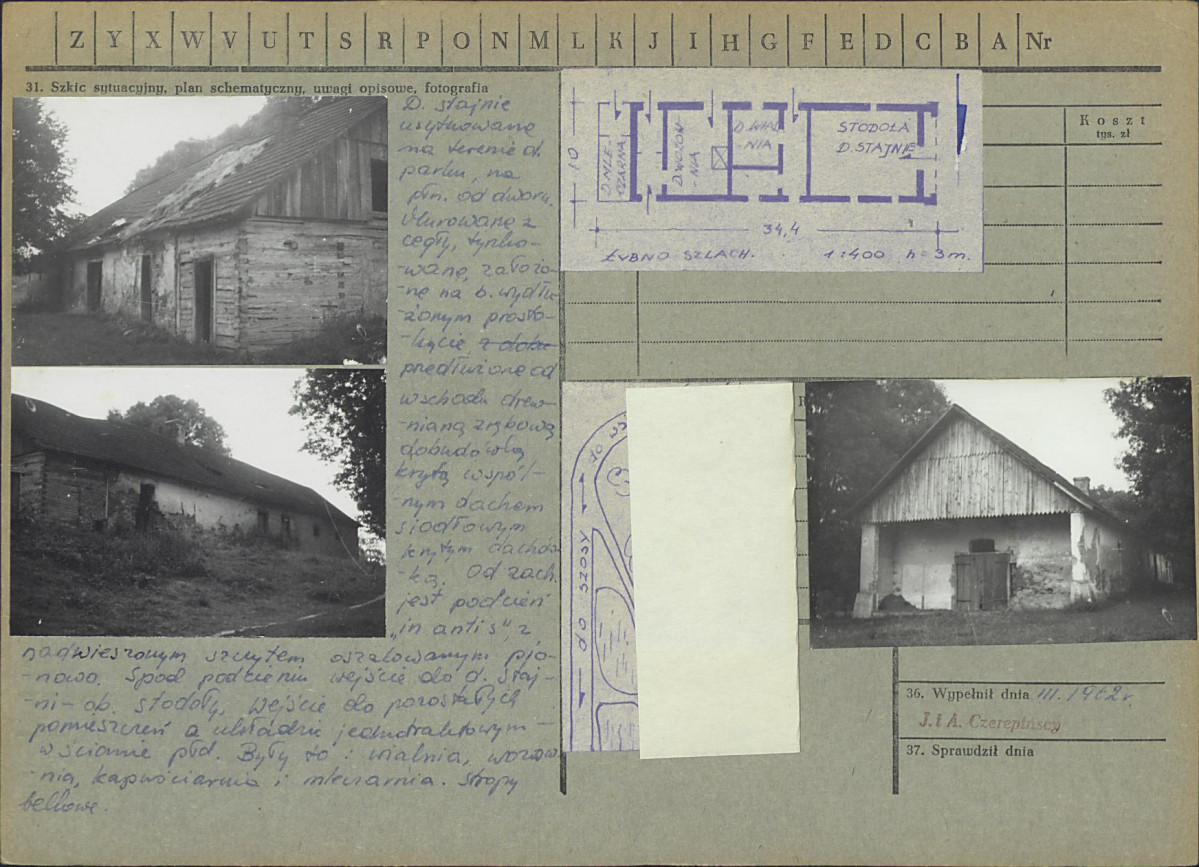 Z Y X W V U T S R P O N M L K J I H G F E D C B A Nr
31. Szkic sytuacyjny, plan schematyczny, uwagi opisowe, fotografia
D. stajnie
usytuowane
na terenie d.
parku, na
płn. od dworu.
Murowane z
cegły, tynko-
-wane, założo-
-ne na b. wydłu-
-żonym prosto-
-kącie
przedłużone od
wschodu drew-
-nianą zrębową
dobudówką
krytą wspól-
-nym dachem
siodłowym
krytym dachów-
-ką. Od zach.
jest podcień
"in antis", z
nadwieszonym szczytem oszalowanym pio-
-nowo. Spod podcieniu wejście do d. staj-
-ni - ob. stodoły, wejście do pozostałych
pomieszczeń o układzie jednotraktowym -
w ścianie płd. Były to: wialnia, wozow-
-nia, i mleczarnia. Stropy
belkowe.
10
D. MLE-
CZARNIA
D. WOZOW-
-NIA
D. WIAL
-NIA
STODOŁA
D. STAJNIE
34,4
ŁYBNO SZLACH. 1:400 h = 3m.
Koszt
tys. zł
do szosy
36. Wypełnił dnia III. 1962 r.
J. i A. Czerepińscy
37. Sprawdził dnia